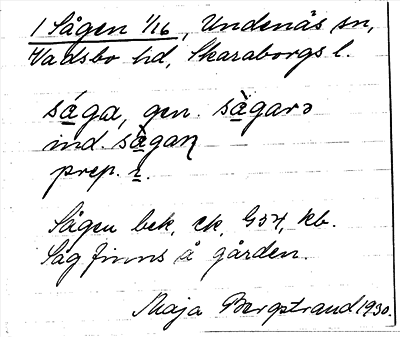 1 Sågen 1/16, Undenäs sn,
Vadsbo hd, Skaraborgs l.
sága, gen. sàgarə
ind. sàgaꞃ
prep. ı.
Sågen bek, ek, G54, kb.
Såg finns å gården.
Maja Bergstrand 1930.